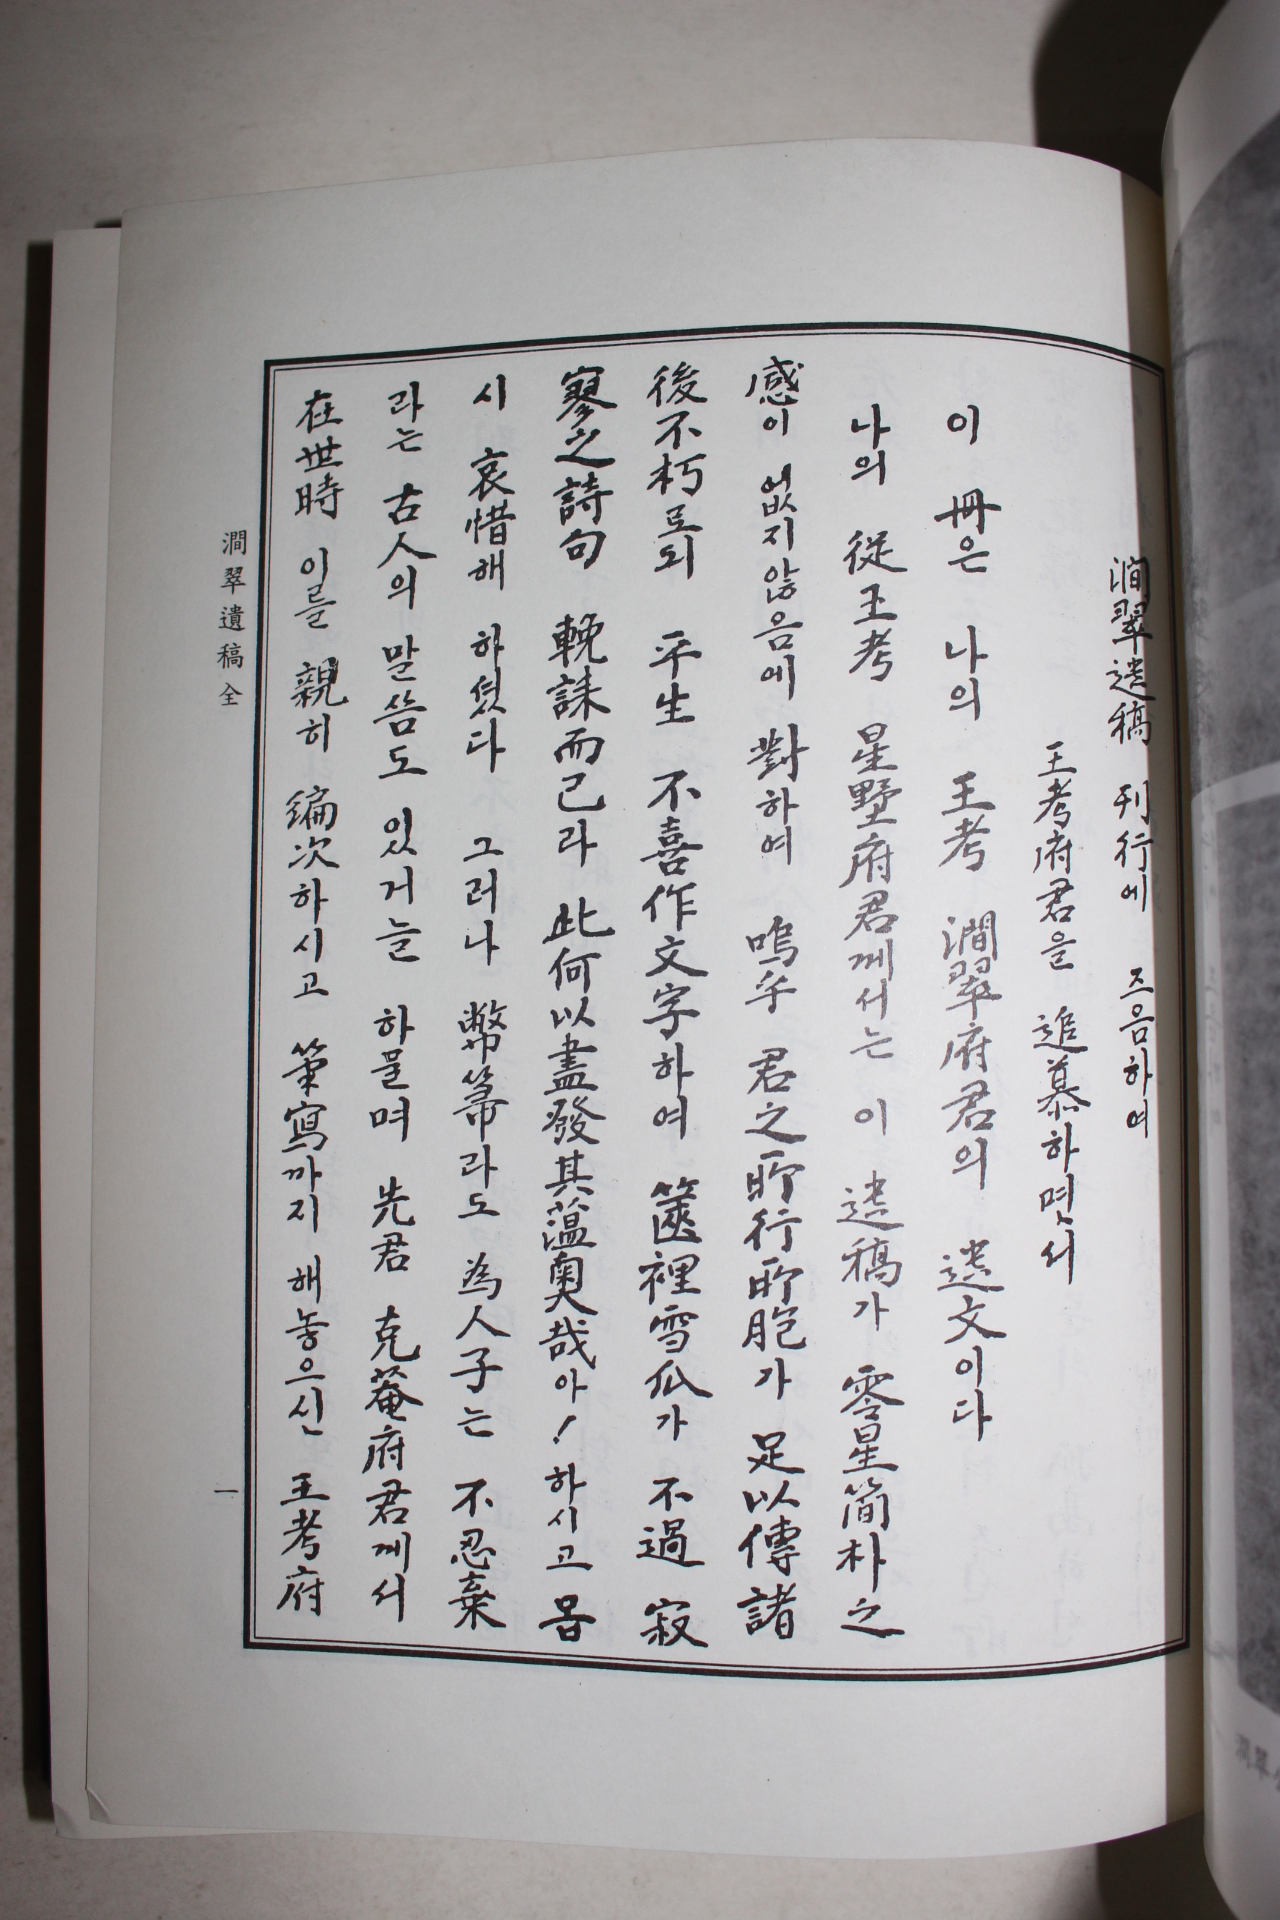 澗翠遺稿 刊行에 즈음하여
王考府君을 追慕하면서
이 冊은 나의 王考 澗翠府君의 遺文이다
나의 從王考 星野府君께서는 이 遺稿가 零星簡朴之
感이 없지않음에 對하여 嗚乎 君之所行所胞가 足以傳諸
後不朽로되 平生 不喜作文字하여 篋裡雪瓜가 不過 寂
寥之詩句 輓誄而已라 此何以盡發其蘊奧哉아! 하시고 몹
시 哀惜해 하셨다 그러나 幣箒라도 為人子는 不忍棄
라는 古人의 말씀도 있거늘 하물며 先君 克菴府君께서
在世時 이를 親히 編次하시고 筆寫까지 해놓으신 王考府
澗翠遺稿 全
一